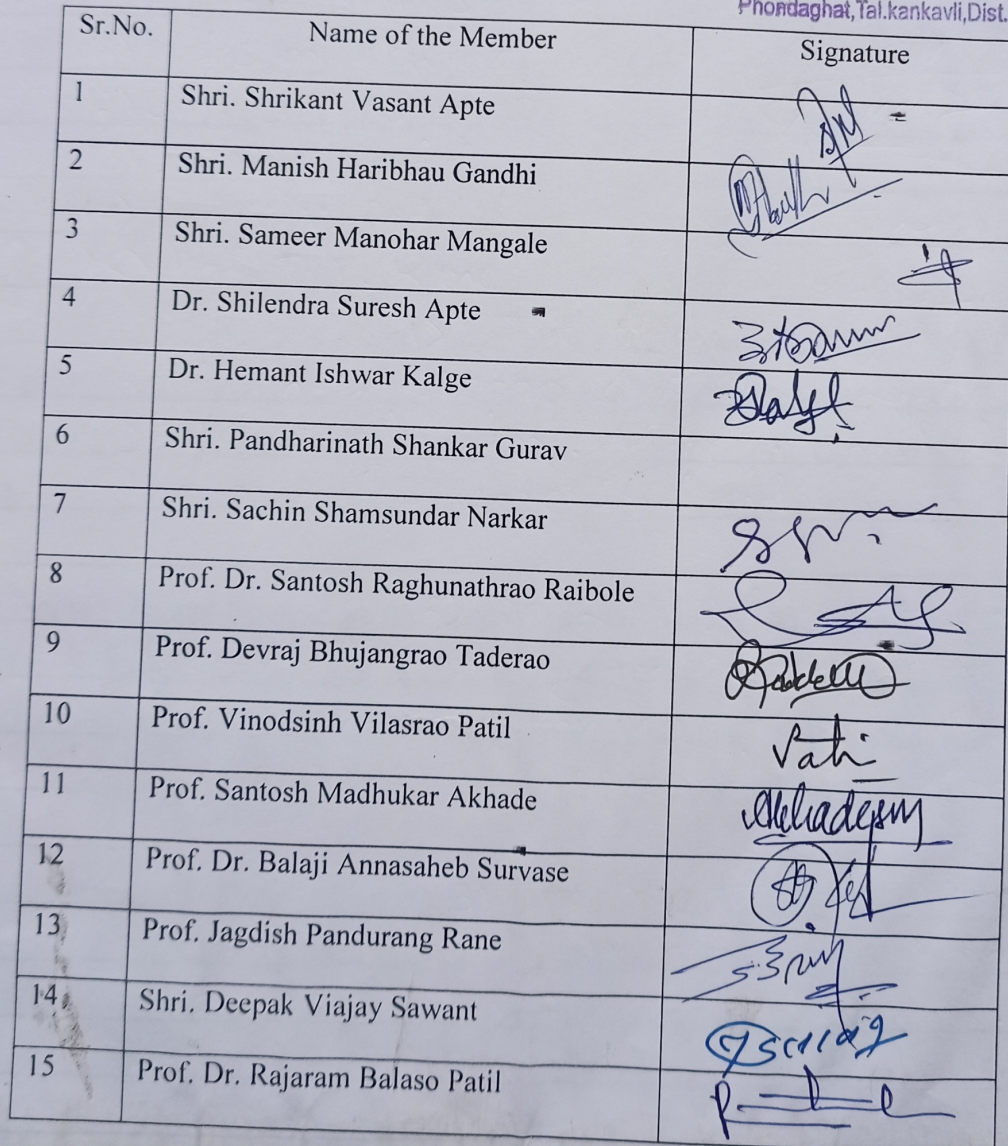 Phondaghat,Tal.kankavli,Dist.
Sr.No. Name of the Member Signature
1 Shri. Shrikant Vasant Apte
2 Shri. Manish Haribhau Gandhi
3 Shri. Sameer Manohar Mangale
4 Dr. Shilendra Suresh Apte
5 Dr. Hemant Ishwar Kalge
6 Shri. Pandharinath Shankar Gurav
7 Shri. Sachin Shamsundar Narkar
8 Prof. Dr. Santosh Raghunathrao Raibole
9 Prof. Devraj Bhujangrao Taderao
10 Prof. Vinodsinh Vilasrao Patil
11 Prof. Santosh Madhukar Akhade
12 Prof. Dr. Balaji Annasaheb Survase
13 Prof. Jagdish Pandurang Rane
14 Shri. Deepak Viajay Sawant
15 Prof. Dr. Rajaram Balaso Patil